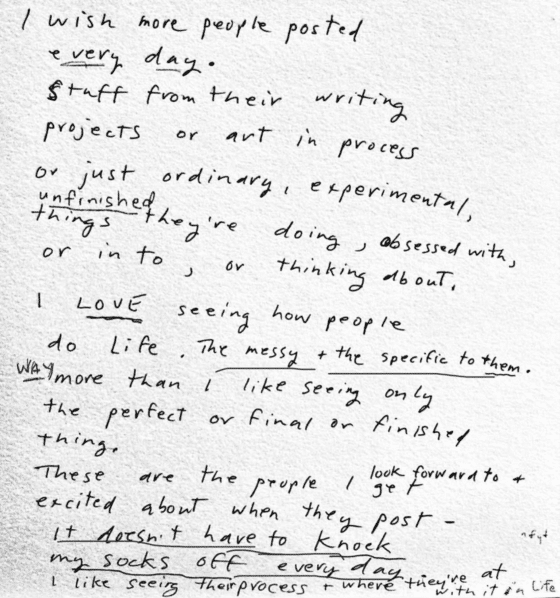 I wish more people posted
every day.
Stuff from their writing
projects or art in process
or just ordinary, experimental,
unfinished
things they're doing, obsessed with,
or in to, or thinking about.
I LOVE seeing how people
do Life. The messy + the specific to them.
WAY more than I like seeing only
the perfect or final or finished
thing.
These are the people I look forward to + get
excited about when they post -
It doesn't have to knock
my socks off every day
I like seeing their process + where they're at
with it in Life